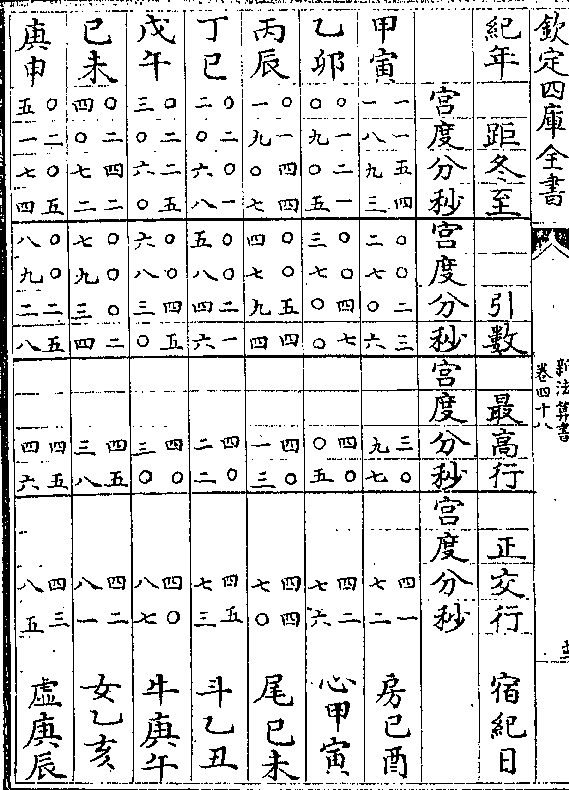 欽定四庫全書
新法算書
卷四十八
紀年 距冬至 引數 最高行 正交行 宿紀日
宮度分秒 宮度分秒 宮度分秒 宮度分秒
甲寅 一一 一八 五九 四三 〇二 〇七 二〇 三六 三九 〇七 四七 一二 房己酉
乙卯 〇〇 一九 二〇 一五 〇三 〇七 四〇 七〇 四〇 〇五 四七 二六 心甲寅
丙辰 〇一 一九 四〇 四七 〇四 〇七 五九 四四 四一 〇三 四七 四〇 尾己未
丁巳 〇二 二〇 〇六 一八 〇五 〇八 二四 一六 四二 〇二 四七 五三 斗乙丑
戊午 〇三 二〇 二六 五〇 〇六 〇八 四三 五〇 四三 〇〇 四八 〇七 牛庚午
己未 〇四 二〇 四七 二二 〇七 〇九 〇三 二四 四三 五八 四八 二一 女乙亥
庚申 〇五 二一 〇七 五四 〇八 〇九 二二 五八 四四 五六 四八 三五 虛庚辰